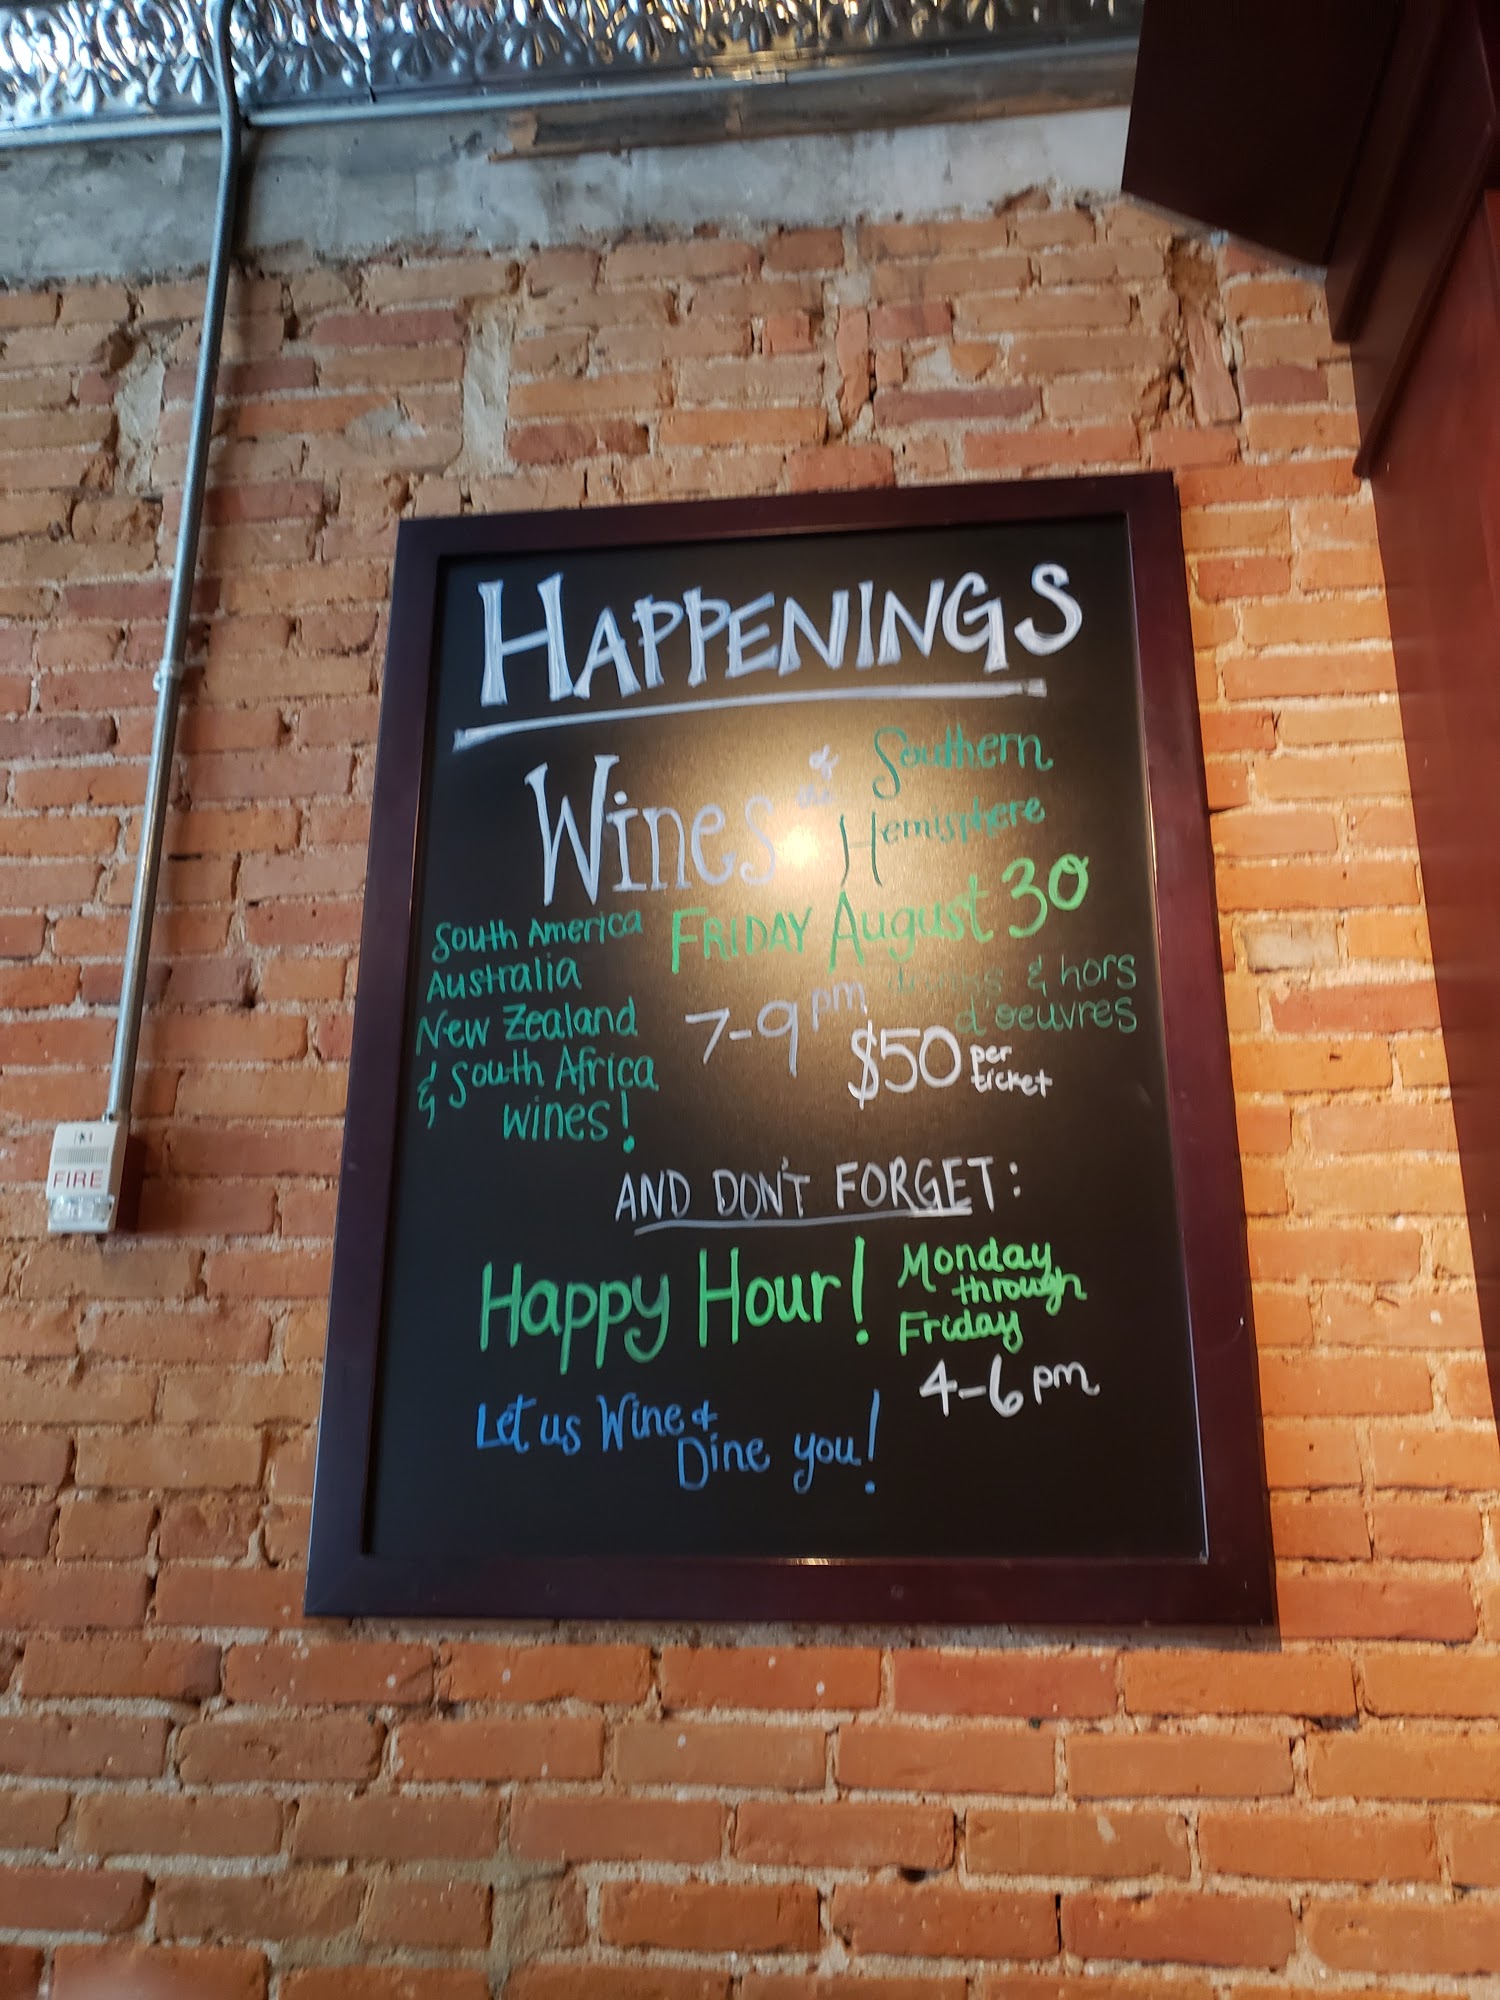 HAPPENINGS
Wines of the Southern Hemisphere
FRIDAY August 30
7-9 pm
drinks & hors
d'oeuvres
$50 per ticket
South America
Australia
New Zealand
& South Africa
wines!
AND DON'T FORGET:
Happy Hour!
Monday
through
Friday
4-6 pm
Let us Wine &
Dine you!
FIRE